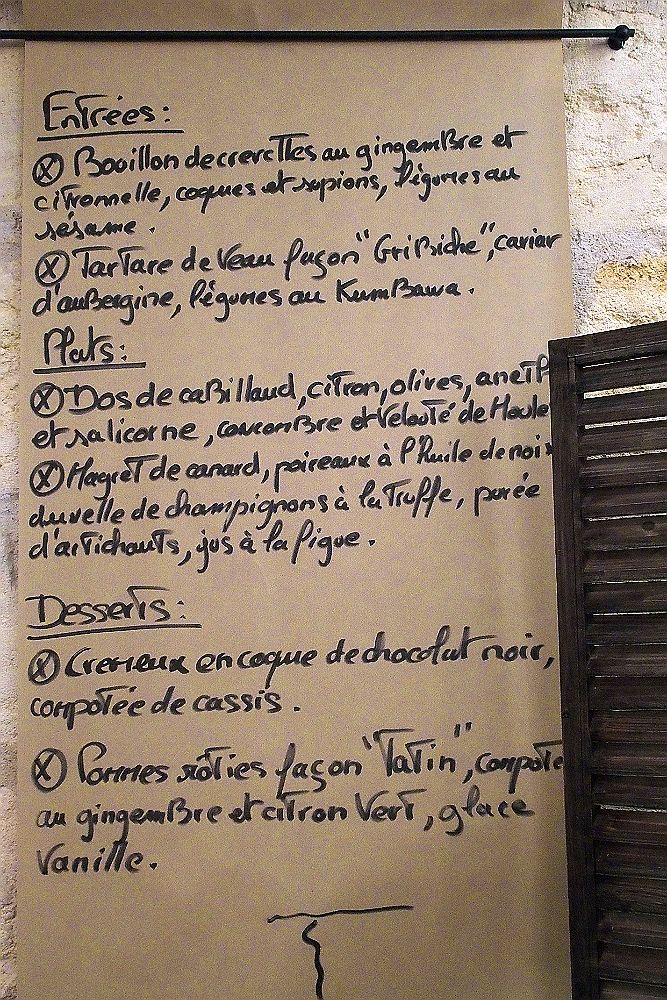 Entrées :
ⓧ Bouillon de crevettes au gingembre et
citronnelle, coques et supions, légumes au
sésame .
ⓧ Tartare de Veau façon "Gribiche", caviar
d'aubergine, légumes au KumBawa .
Plats :
ⓧ Dos de cabillaud, citron, olives, aneth
et salicorne, concombre et Velouté de Moule
ⓧ Magret de canard, poireaux à l'huile de noix
duxelle de champignons à la truffe, purée
d'artichauts, jus à la figue .
Desserts :
ⓧ Cremeux en coque de chocolat noir,
compotée de cassis .
ⓧ Pommes rôties façon "Tatin", compote
au gingembre et citron Vert, glace
Vanille .